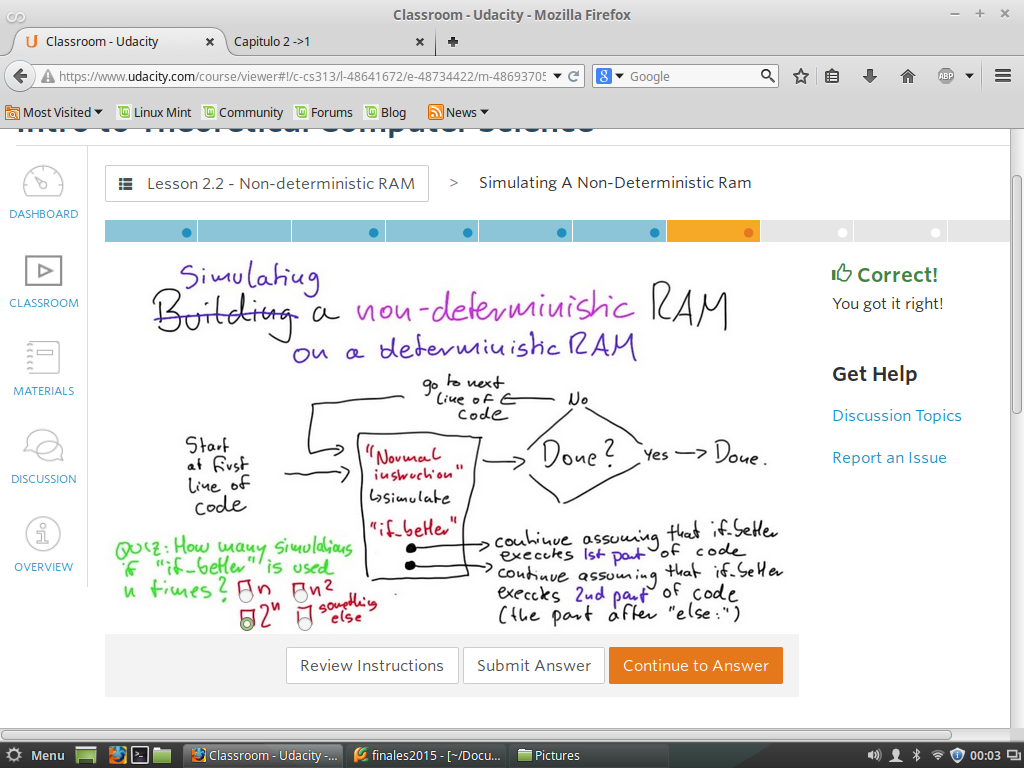 Classroom - Udacity - Mozilla Firefox
Classroom - Udacity
Capitulo 2 ->1
https://www.udacity.com/course/viewer#!/c-cs313/l-48641672/e-48734422/m-48693705
Google
ABP
Most Visited
Linux Mint
Community
Forums
Blog
News
Intro to Theoretical Computer Science
DASHBOARD
CLASSROOM
MATERIALS
DISCUSSION
OVERVIEW
Lesson 2.2 - Non-deterministic RAM
>
Simulating A Non-Deterministic Ram
Simulating
Building a non-deterministic RAM
on a deterministic RAM
go to next
line of
code
No
Start
at first
line of
code
"Normal
instruction"
↳simulate
"if_better"
Done?
Yes
Done.
continue assuming that if_better
executes 1st part of code
continue assuming that if_better
executes 2nd part of code
(the part after "else:")
QUIZ: How many simulations
if "if_better" is used
n times?
n
n²
2ⁿ
something
else
Correct!
You got it right!
Get Help
Discussion Topics
Report an Issue
Review Instructions
Submit Answer
Continue to Answer
Menu
Classroom - Udacity -...
finales2015 - [~/Docu...
Pictures
00:03